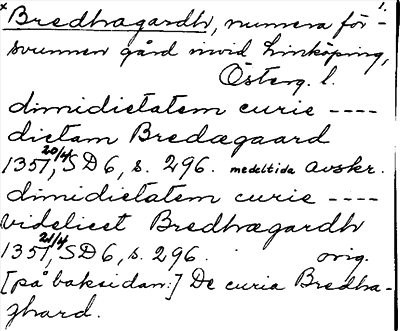 × Bredhagardh, numera för- 1.
svunnen gård invid Linköping,
Österg. l.
dimidietatem curie ----
dictam Bredægaard
1351 20/4, SD 6, s. 296. medeltida avskr.
dimidietatem curie ----
videlicet Bredhægardh
1351 21/4, SD 6, s. 296. orig.
[på baksidan:] De curia Bredha-
ghard.